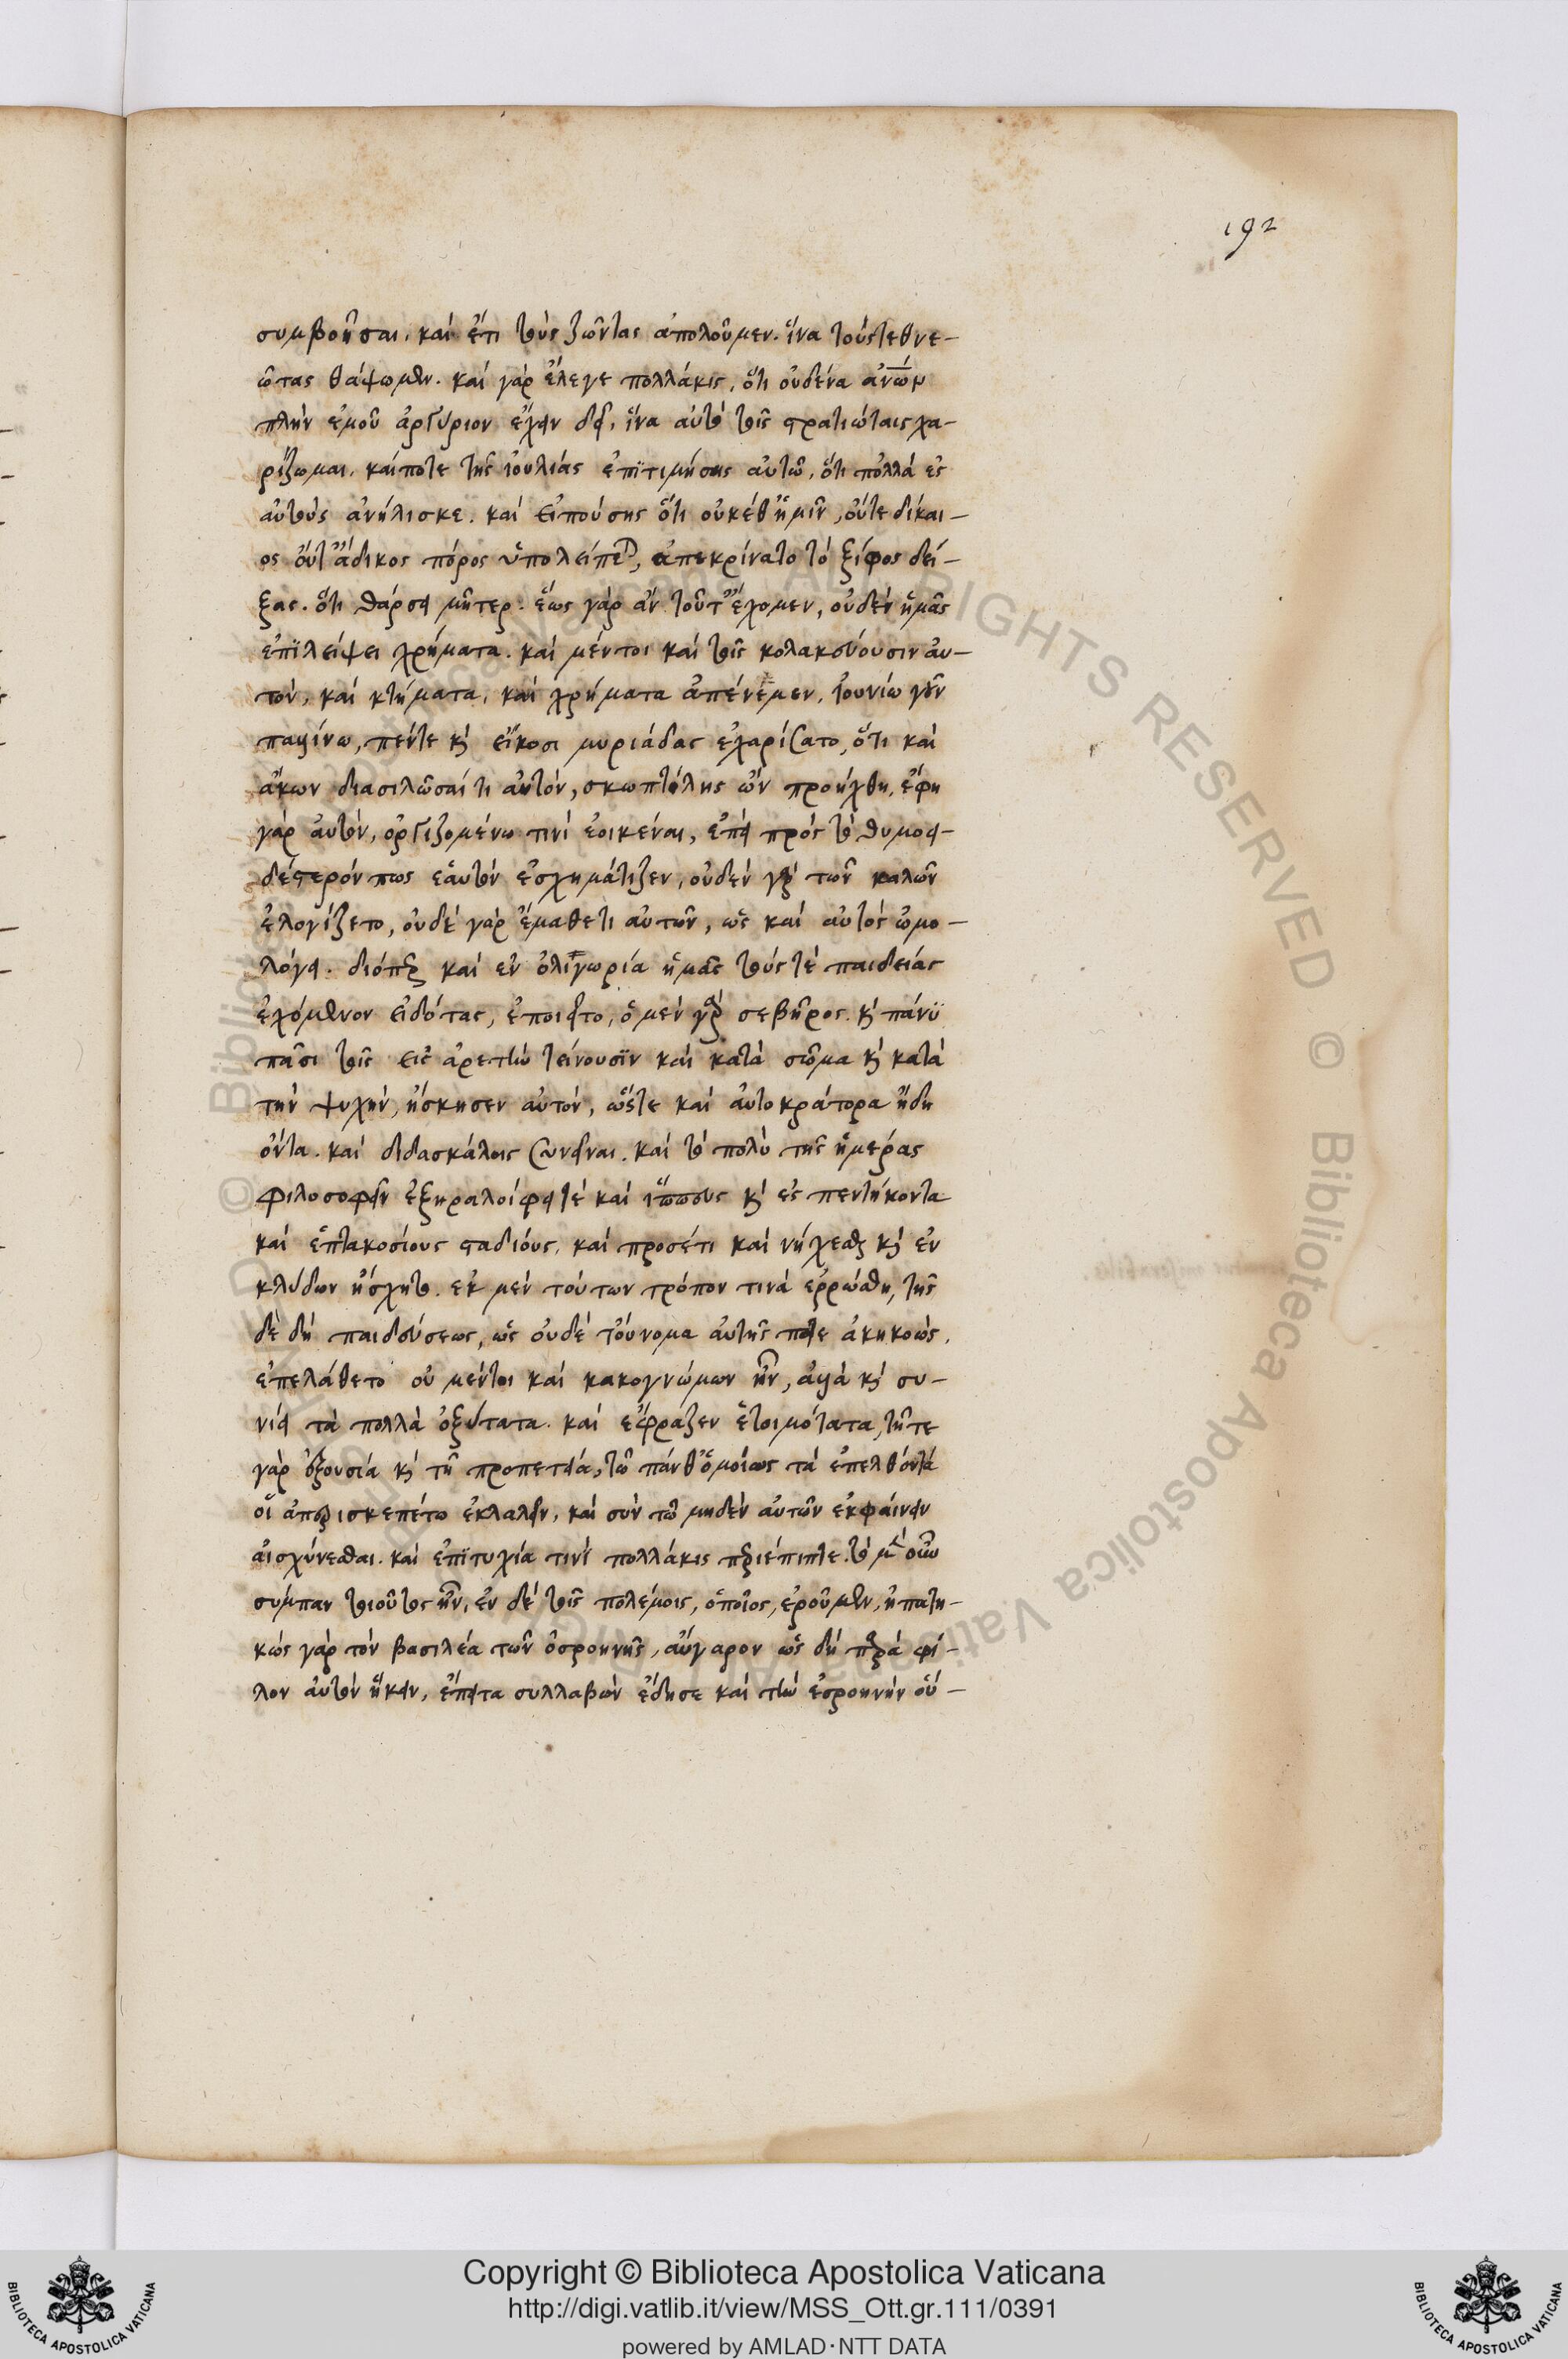 192
συμβοῆσαι. καὶ ἔτι τοὺς ζῶντας ἀπολοῦμεν. ἵνα τοὺς τεθνε-
ῶτας θάψωμεν. καὶ γὰρ ἔλεγε πολλάκις, ὅτι οὐδένα ἀνῶν
πλὴν ἐμοῦ ἀργύριον ἔχειν δεῖ, ἵνα αὐτὸ τοῖς στρατιώταις χα-
ρίζωμαι. καί ποτε τῆς ἰουλίας ἐπιτιμήσης αὐτῶ, ὅτι πολλὰ ἐς
αὐτοὺς ἀνήλισκε. καὶ εἰπούσης ὅτι οὐκέθ' ἡμῖν, οὔτε δίκαι-
ος οὔτ' ἄδικος πόρος ὑπολείπεται, ἀπεκρίνατο τὸ ξίφος δεί-
ξας. ὅτι θάρσει μῆτερ. ἕως γὰρ ἂν τοῦτ' ἔχομεν, οὐδὲν ἡμᾶς
ἐπιλείψει χρήματα. καὶ μέντοι καὶ τοῖς κολακεύουσιν αὐ-
τὸν, καὶ κτήματα, καὶ χρήματα ἀπένεμεν. ἰουνίω γοῦν
παυλίνω, πέντε καὶ εἴκοσι μυριάδας ἐχαρίσατο, ὅτι καὶ
ἄκων διασιλῶσαί τι αὐτὸν, σκωπτόλης ὢν προήχθη. ἔφη
γὰρ αὐτὸν, ὀργιζομένω τινὶ ἐοικέναι, ἐπεὶ πρὸς τὸ θυμοει-
δέστερόν πως ἑαυτὸν ἐσχημάτιζεν, οὐδὲν γὰρ τῶν καλῶν
ἐλογίζετο, οὐδὲ γὰρ ἔμαθέ τι αὐτῶν, ὡς καὶ αὐτὸς ὡμο-
λόγει. διόπερ καὶ ἐν ὀλιγωρία ἡμᾶς τούς τὲ παιδείας
ἐχόμενον εἰδότας, ἐποιεῖτο, ὁ μὲν γὰρ σεβῆρος. καὶ πάνυ
πᾶσι τοῖς εἰς ἀρετὴν τείνουσιν καὶ κατὰ σῶμα καὶ κατὰ
τὴν ψυχὴν, ἤσκησεν αὐτὸν, ὥστε καὶ αὐτοκράτορα ἤδη
ὄντα. καὶ διδασκάλοις συνεῖναι. καὶ τὸ πολὺ τῆς ἡμέρας
φιλοσοφεῖν ἐξηραλοίφει τὲ καὶ ἵππους καὶ ἐς πεντήκοντα
καὶ ἑπτακοσίους σταδίους, καὶ προσέτι καὶ νήχεσθαι καὶ ἐν
κλύδων ἤσκητο. ἐκ μὲν τούτων τρόπον τινὰ ἐρρώσθη, τῆς
δὲ δὴ παιδεύσεως, ὡς οὐδὲ τοὔνομα αὐτῆς ποτε ἀκηκοὼς.
ἐπελάθετο οὐ μέντοι καὶ κακογνώμων ἦν, ἀλλὰ καὶ συ-
νίει τὰ πολλὰ ὀξύτατα. καὶ ἔφραζεν ἑτοιμότατα, τῆ τε
γὰρ ἐξουσία καὶ τῆ προπετεία, τῶ πάνθ' ὁμοίως τὰ ἐπελθόντά
οἱ ἀπερισκέπτω ἐκλαλεῖν, καὶ σὺν τῶ μηδὲν αὐτῶν ἐκφαίνειν
αἰσχύνεσθαι. καὶ ἐπιτυχία τινὶ πολλάκις περιέπιπτε. τὸ μὲν οὖν
σύμπαν τοιοῦτος ἦν, ἐν δὲ τοῖς πολέμοις, ὁποῖος, ἐροῦμεν, ἠπατη-
κὼς γὰρ τὸν βασιλέα τῶν ὀσροηνῆς, αὔγαρον ὡς δὴ παρὰ φί-
λον αὐτὸν ἥκειν, ἔπειτα συλλαβὼν ἔδησε καὶ τὴν ἐσροηνὴν οὕ-
Copyright © Biblioteca Apostolica Vaticana
http://digi.vatlib.it/view/MSS_Ott.gr.111/0391
powered by AMLAD·NTT DATA